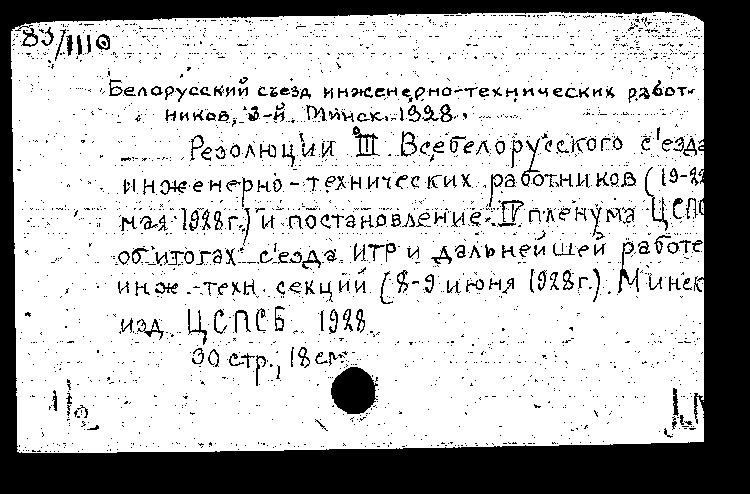 83/1110
Белорусский съезд инженерно-технических работ-
ников, 3-й. Минск. 1928.
Резолюции III Всебелорусского с'езда
инженерно-технических работников (19-22
мая 1928г.) и постановление IV пленума ЦСПС
об итогах с'езда ИТР и дальнейшей работе
инж.-техн. секций (8-9 июня 1928г.). Минск
изд. ЦСПСБ 1928.
30 стр., 18 см